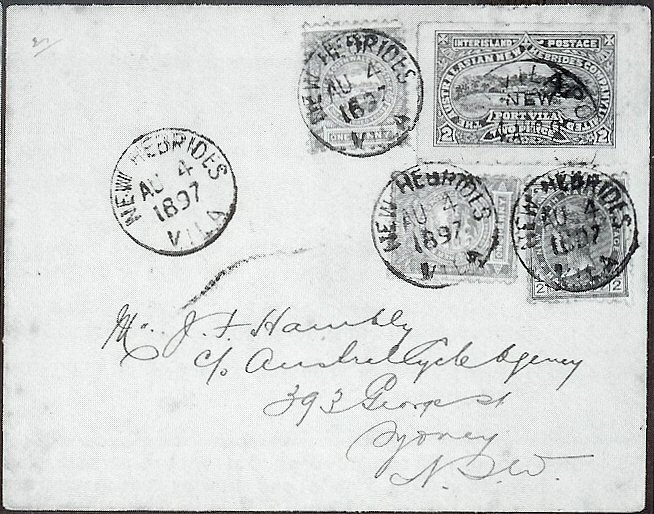 NEW HEBRIDES
AU 4
1897
VILA
INTER ISLAND POSTAGE
AUSTRALASIAN NEW HEBRIDES COMPANY
PORT VILA
2
NEW
NEW HEBRIDES
AU 4
1897
VILA
NEW HEBRIDES
AU 4
1897
VILA
NEW HEBRIDES
AU 4
1897
VILA
2
2
Mr. J. F. Hambly
c/o Austral Cycle Agency
393 George St
Sydney
N.S.W.